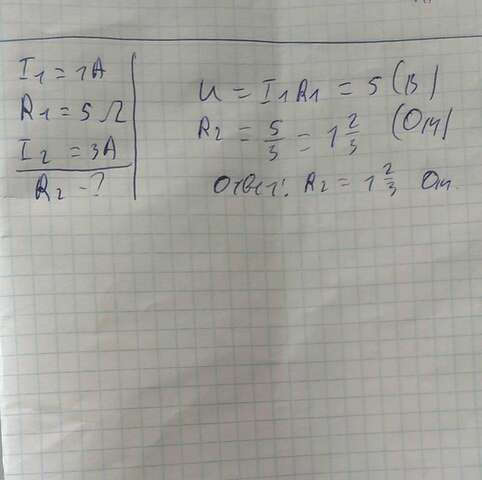 I1 = 1A
R1 = 5 Ω
I2 = 3A
R2 - ?
U = I1R1 = 5 (В)
R2 = 5/3 = 1 2/3 (Ом)
Ответ: R2 = 1 2/3 Ом.